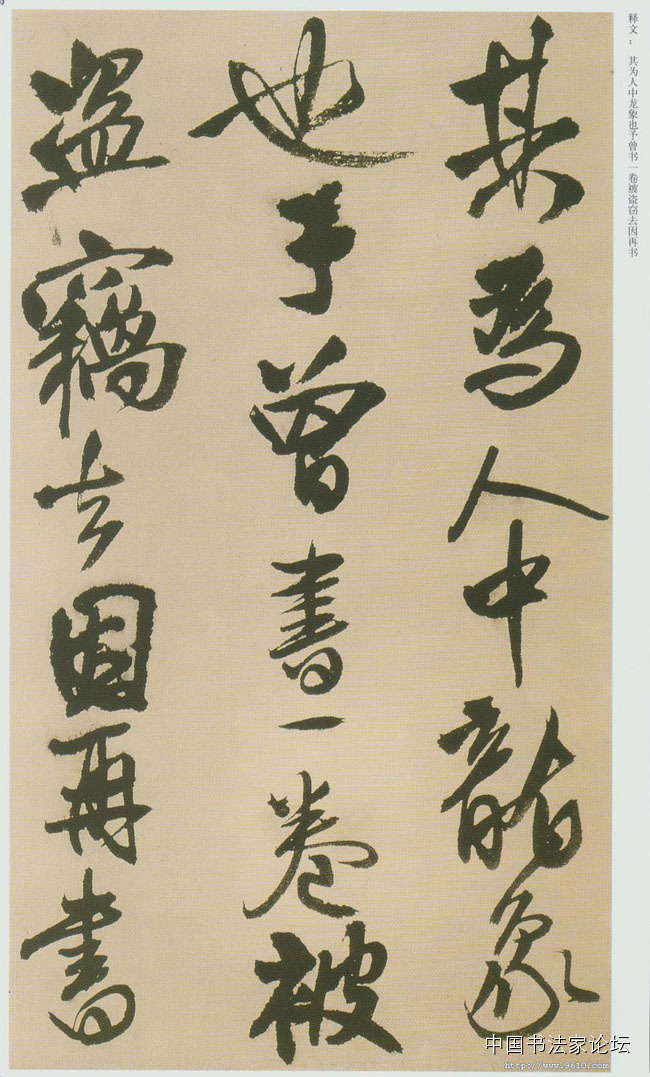 其为人中龙象
也予曾書一卷被
盗竊去因再書
释文： 其为人中龙象也予曾书一卷被盗窃去因再书
中国书法家论坛
http://www.9610.com